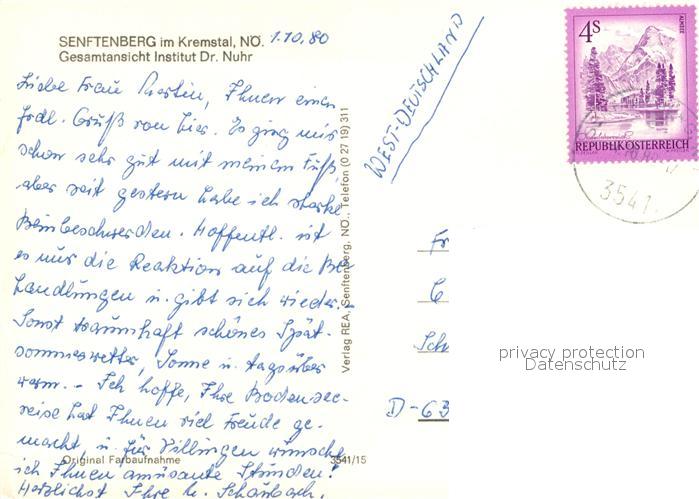 SENFTENBERG im Kremstal, NÖ. 1.10.80
Gesamtansicht Institut Dr. Nuhr
Liebe Frau Martin, Ihnen einen
frdl. Gruß von hier. Es ging mir
schon sehr gut mit meinem Fuß,
aber seit gestern habe ich starke
Beinbeschwerden. Hoffentl. ist
es nur die Reaktion auf die Be-
handlungen u. gibt sich wieder. -
Sonst traumhaft schönes Spät-
sommerwetter, Sonne u. tagsüber
warm. - Ich hoffe, Ihre Bodensee-
reise hat Ihnen viel Freude ge-
macht, u. für Villingen wünscht
ich Ihnen amüsante Stunden!
Herzlichst Ihre
Original Farbaufnahme
3541/15
Verlag REA, Senftenberg, NÖ., Telefon (0 27 19) 311
WEST-DEUTSCHLAND
4S
ALMSEE
REPUBLIK ÖSTERREICH
3541
Fr
Sch
D-63
privacy protection
Datenschutz